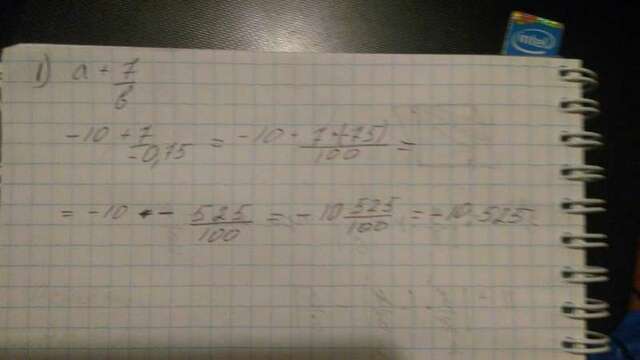 intel
1) a + 7/b
-10 + 7/-0,75 = -10 - 7·(-75)/100 =
= -10 - 525/100 = -10 525/100 = -10.525